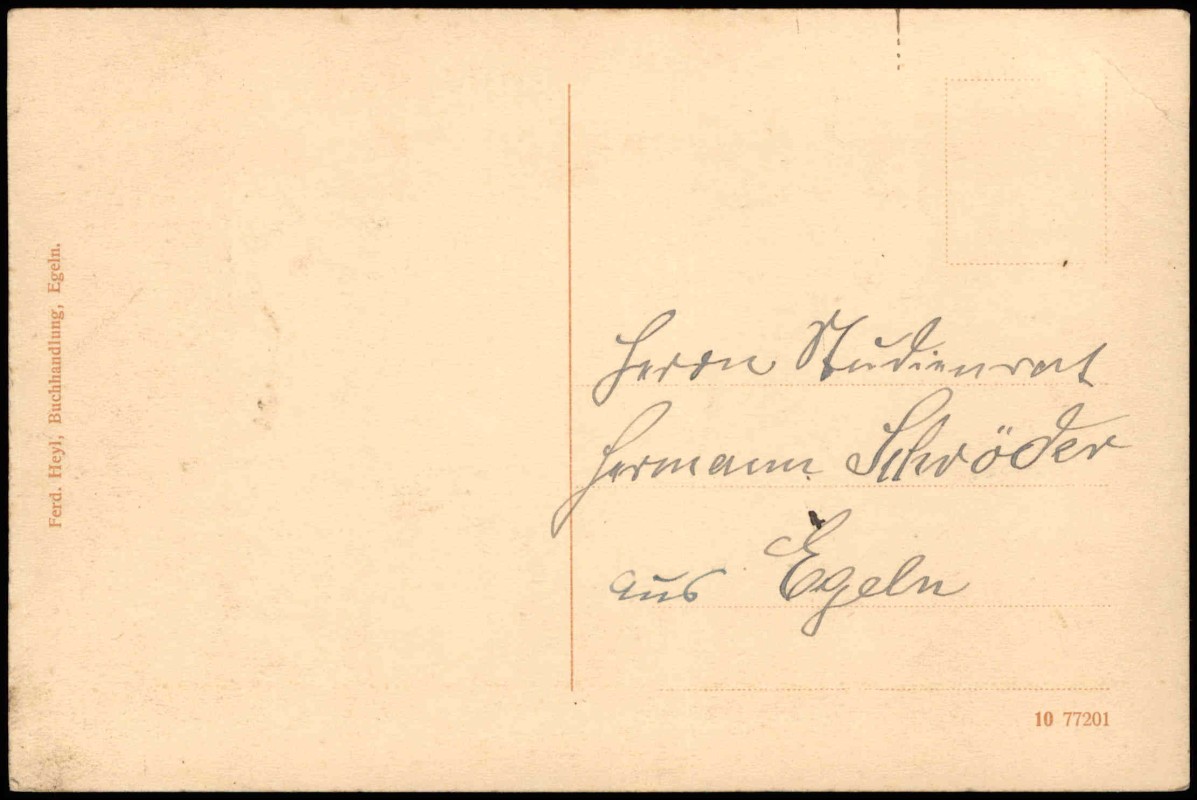 Ferd. Heyl, Buchhandlung, Egeln.
Herrn Studienrat
Hermann Schröder
aus Egeln
10 77201